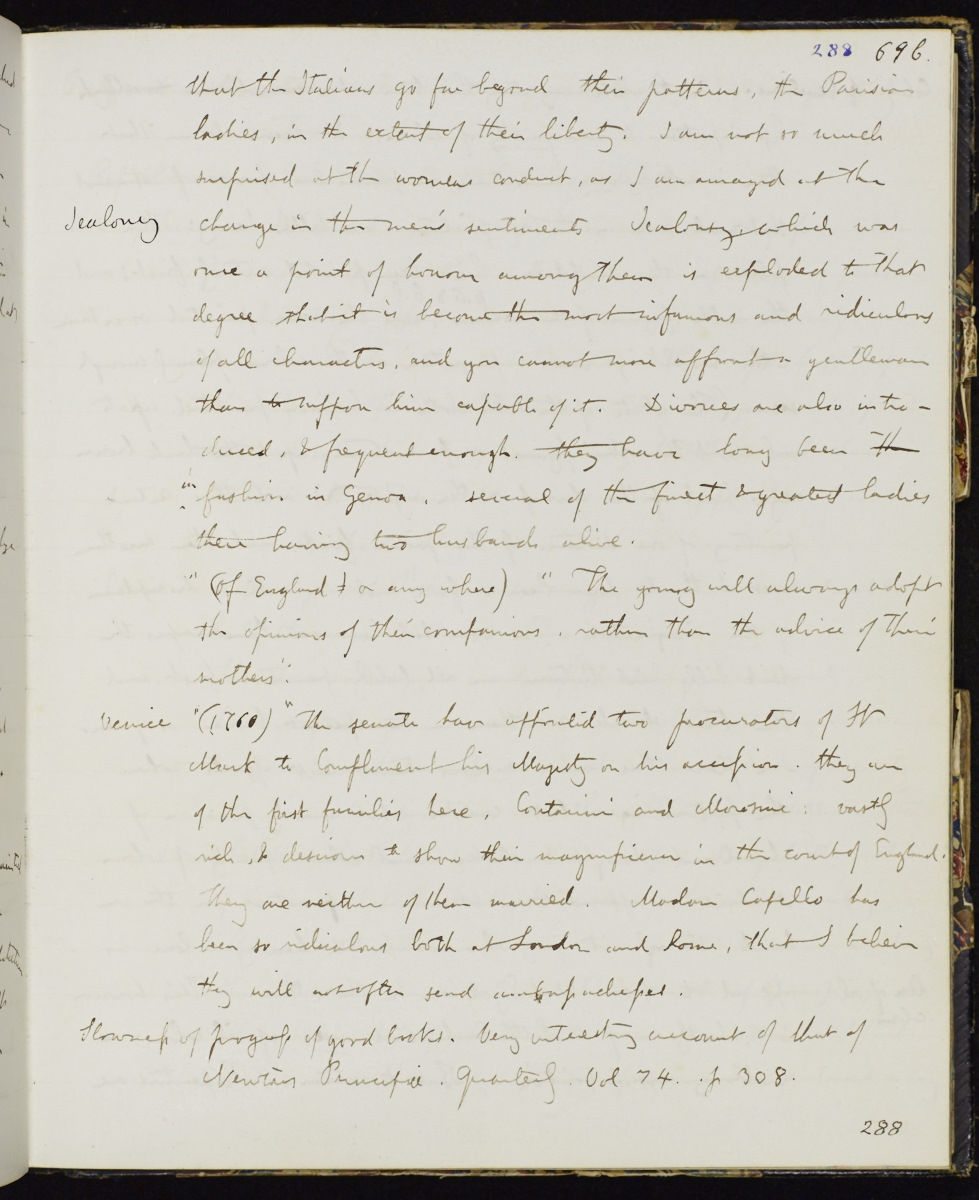 288 696.
that the Italians go far beyond their patterns, the Parisian
ladies, in the extent of their liberty. I am not so much
surprised at the womens conduct, as I am amazed at the
Jealousy change in the men's sentiments Jealousy, which was
once a point of honour among them is exploded to that
degree that it is become the most infamous and ridiculous
of all characters, and you cannot more affront a gentleman
than to suppose him capable of it. Divorces are also intro-
duced, & frequent enough. they have long been the
" fashion in Genoa, several of the finest & greatest ladies
there having two husbands alive.
" (of England or any where) " The young will always adopt
the opinions of their companions, rather than the advice of their
mothers".
Venice "(1760) "The senate have appointed two procurators of St
Mark to Compliment his Majesty on his accession. they are
of the first families here, Contarini and Morosini. vastly
rich, & desirous to show their magnificence in the court of England.
They are neither of them married. Madam Capello has
been so ridiculous both at London and Rome, that I believe
they will not often send ambassadesses.
Slowness of progress of good books. Very interesting account of that of
Newtons Principia. Quarterly. Vol 74. p 308.
288